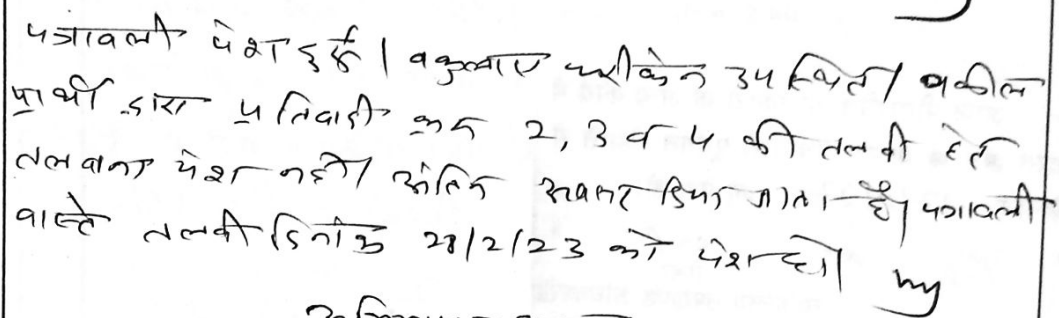 पत्रावली पेश हुई। वकुलाए फरीकेन उपस्थित। वकील
प्रार्थी द्वारा प्रतिवादी क्रम 2, 3 व 4 की तलवी हेतु
तलवाना पेश नहीं। अंतिम अवसर दिया जाता है। पत्रावली
वास्ते तलवी दिनांक 28/2/23 को पेश हो।